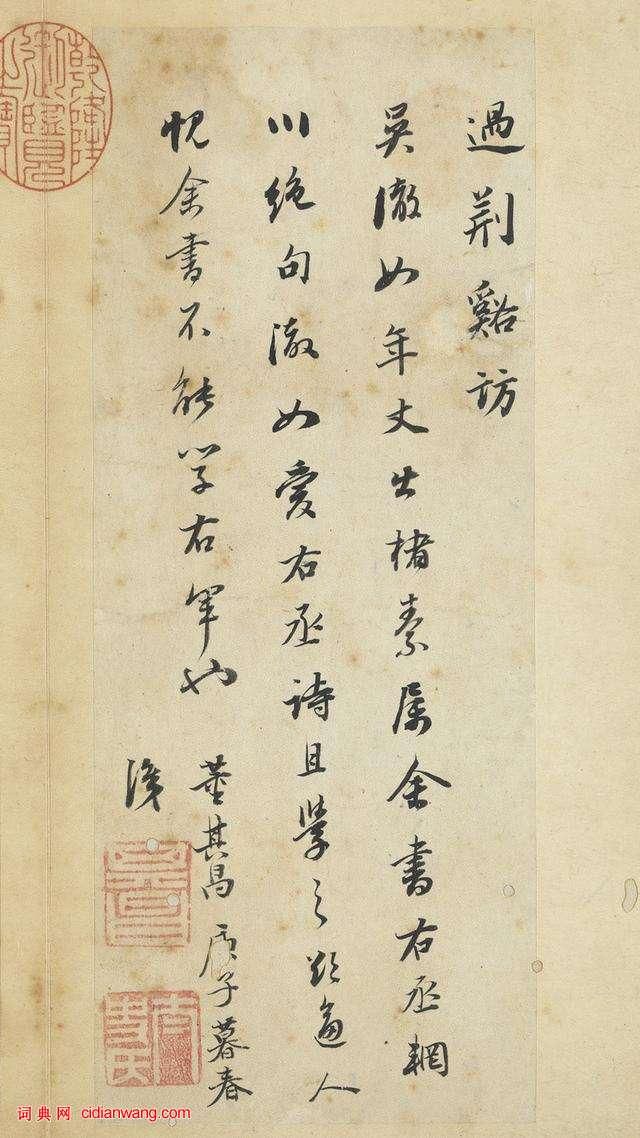 過荊谿訪
吳澈如年丈出楮素属余書右丞輞
川絶句澈如愛右丞詩且學之逼人
愧余書不能學右軍也
董其昌庚子暮春
識
乾隆御覽之寶
词典网 cidianwang.com